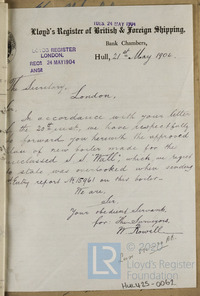 RECD. 24 MAY 1904
Lloyd's Register of British & Foreign Shipping,
Bank Chambers,
LLOYDS REGISTER
LONDON.
RECD 24 MAY 1904
ANSd
Hull, 21st May 1904
The Secretary,
London.
Sir,
In accordance with your letter
the 20th inst. we have respectfully
forward you herewith the approved
plan of new boiler made for the
enclosed S.S. "
which in regret
to state was overlooked when sending
Entry report No 15961 on this boiler.
We are,
Sir,
Your obedient Servant,
for the Surveyors
W. Rowell
© 20
Lloyd's Register
Foundation
HUL425-0062